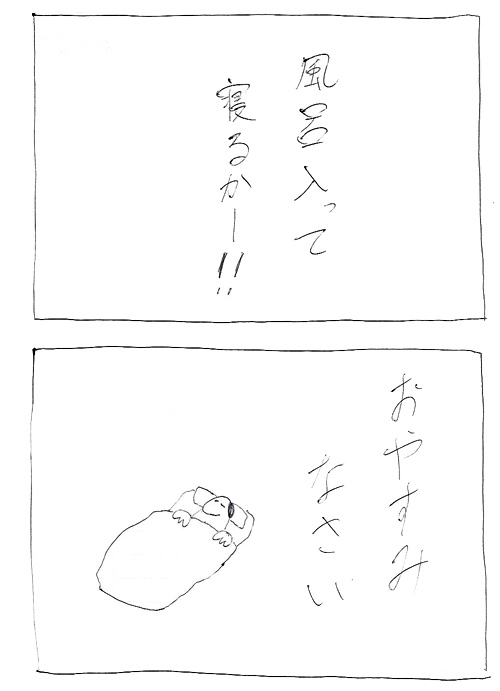 風呂入って
寝るかー!!
おやすみ
なさい